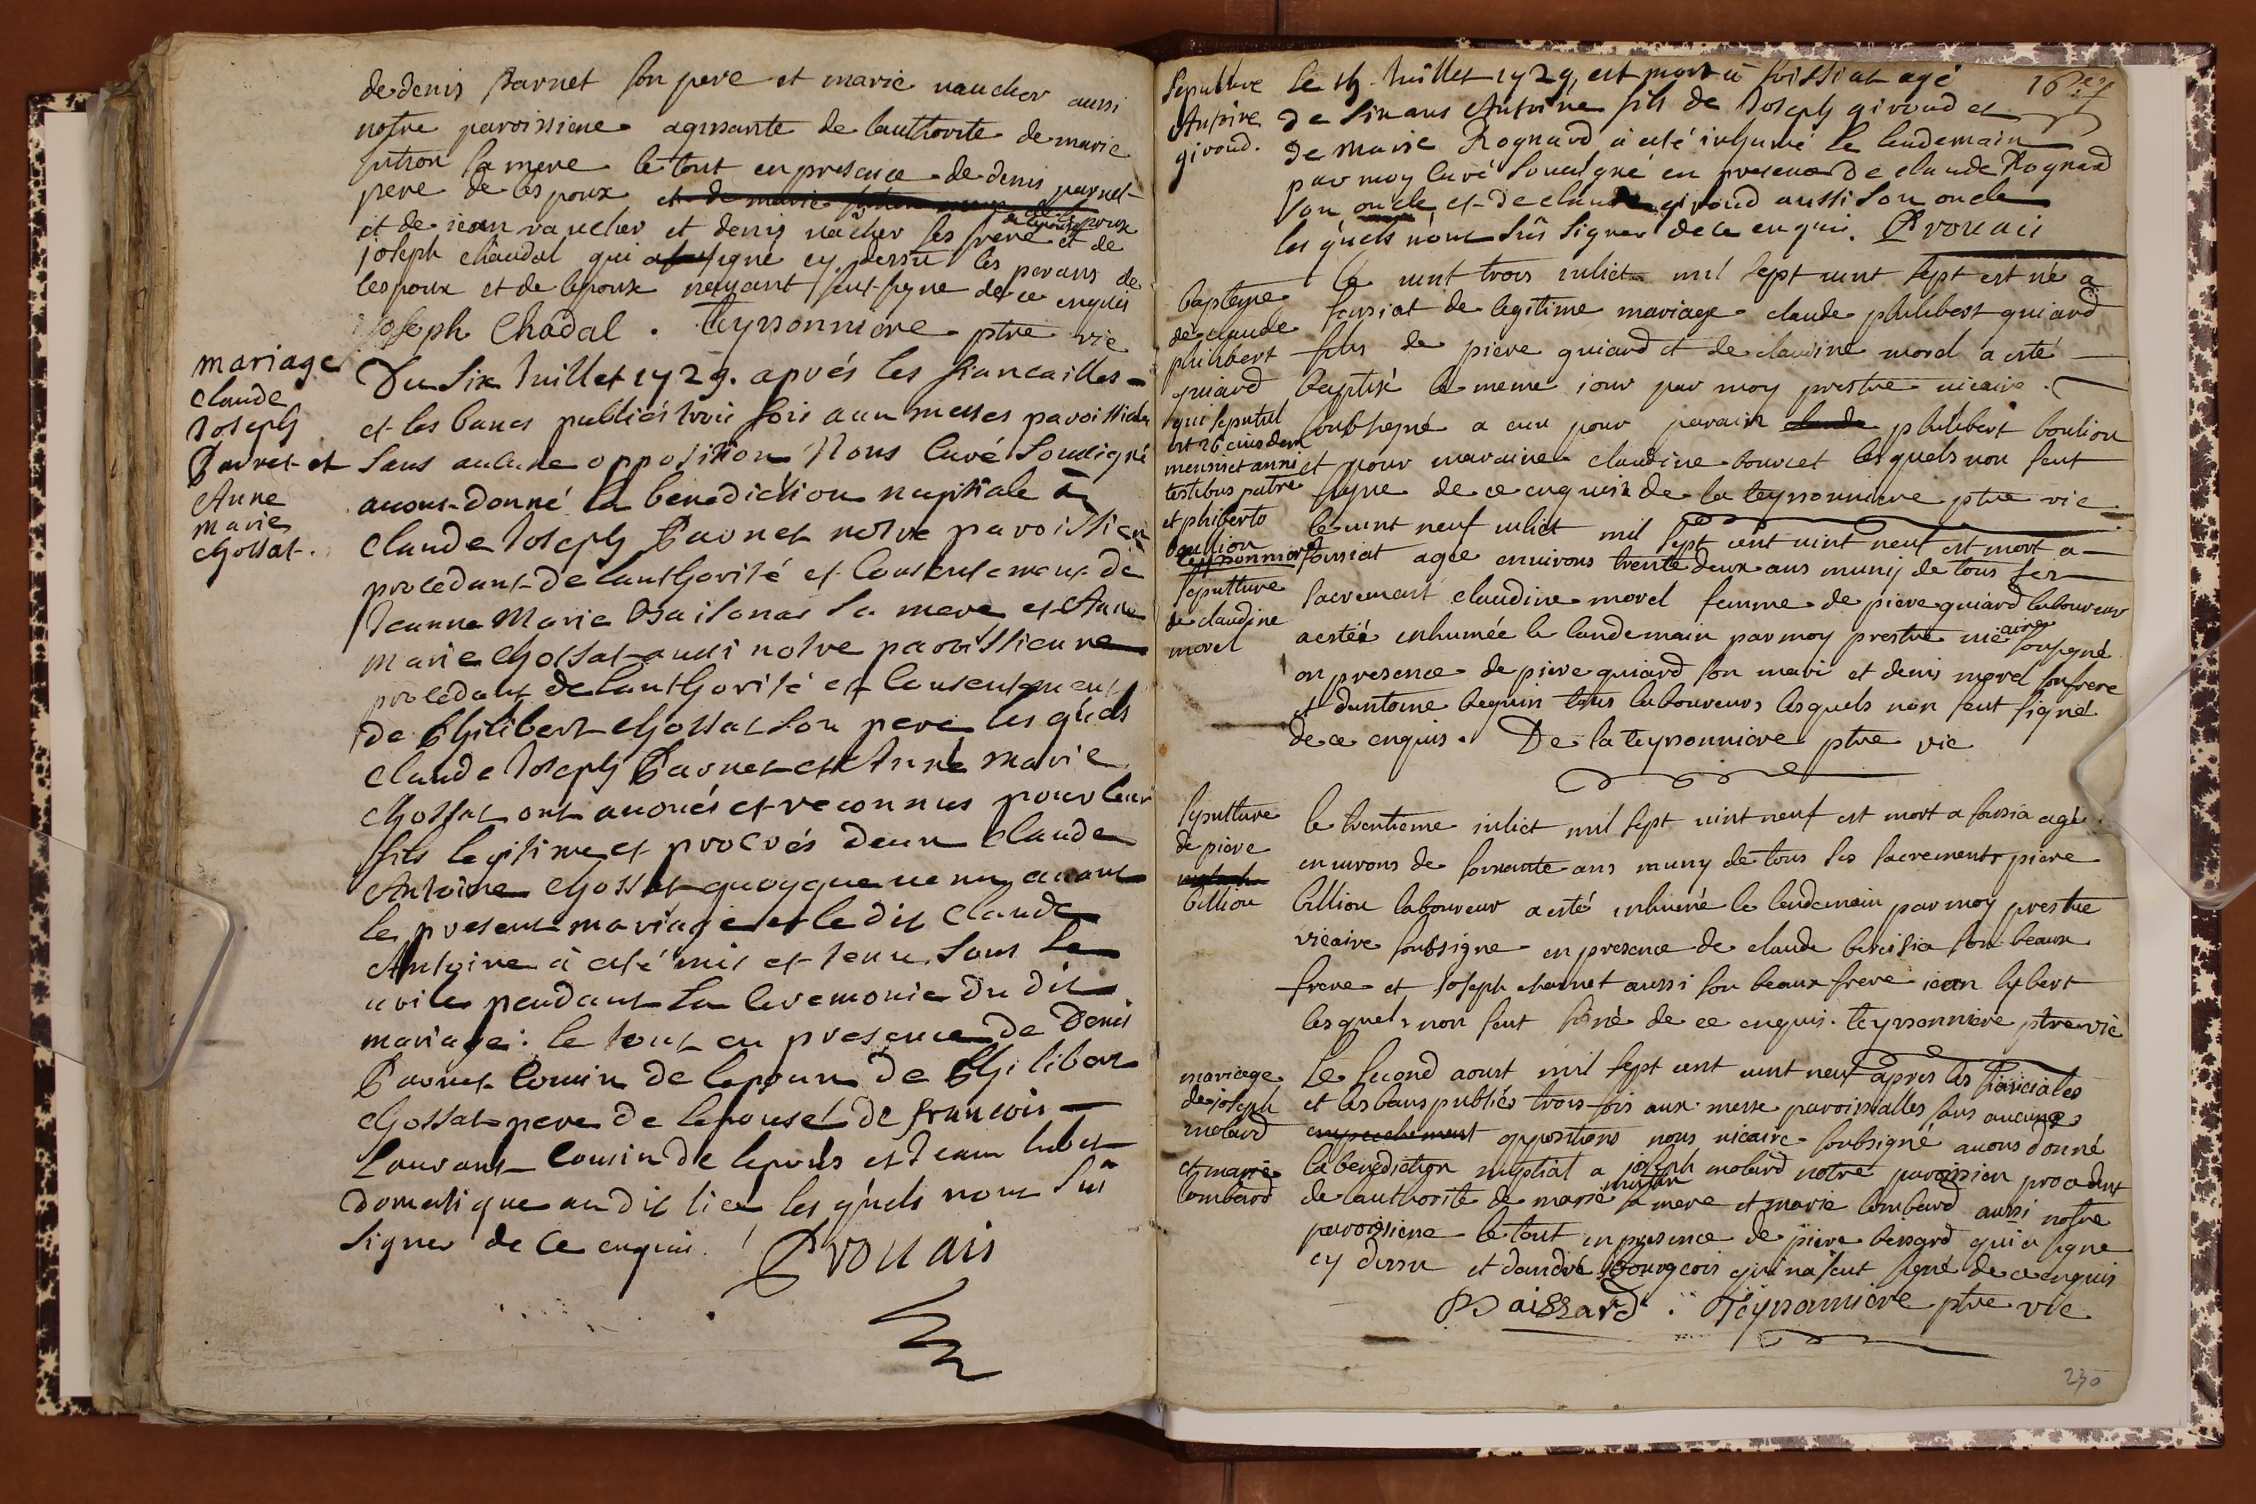 de denis parnet son pere et marie vaucher aussi
notre paroissiene agissante de lauthorite de marie
sutron sa mere le tout en presence de denis parnet
pere de lespoux et de marie
et de iean vaucher et denis vacher ses frere et de
joseph chaudal qui a signe cy dessu les parans de
lespoux et de lepoux nayant seut signe de ce enquis
joseph Chadal . Teyssonniere ptre vic
mariage
claude
Joseph
Parnet et
Anne
marie
chossat.
Du six Juillet 1729. aprés les fiancailles
et les bancs publiés trois fois aux messes paroissiales
sans aucune opposition Nous curé soussigné
avons donné la benediction nuptiale à
claude Joseph Parnet notre paroissien
procedant de lauthorité et consentement de
Jeanne Marie sa mere et Anne
marie chossat aussi notre paroissienne
procedant de lauthorité et consentement
de Philibert chossat son pere les quels
claude Joseph Parnet et Anne marie
chossat ont avoués et reconnus pour leur
fils legitime et procrés deux claude
Antoine chossat quoyque venu avant
le present mariage et le dit claude
Antoine à esté mis et tenu sous le
voile pendant la ceremonie du dit
mariage: le tout en presence de Denis
Parnet cousin de lepoux de Philibert
chossat pere de lepouse de francois
Laurant cousin de lepoux et Jean lubet
domestique au dit lieu les quels nont sus
signer de ce enquis. Provais
16
Sepulture
Antoine
giroud.
Le 15 Juillet 1729, est mort à foissiat agé
de six ans Antoine fils de Joseph giroud et
de Marie Rognard à esté inhumé le lendemain
par moy curé soussigné en presence de claude Rognard
son oncle et de claude giroud aussi son oncle
les quels n'ont sûs signer de ce enquis. Provais
baptême
de claude
philibert
guiard
qui sepultus
est 26 eiusdem
mensis et anni
testibus patre
et philiberto
boullion
teyssonniere
le vint trois iuliet mil sept cent sept est né a
foissiat de legitime mariage claude philibert guiard
fils de piere guiard et de claudine morel a esté
baptisé le meme iour par moy prestre vicaire
soubsigné a eux pour parain claude philibert boulion
et pour maraine claudine bourcet les quels non seut
signe de ce enquis de la teyssonniere ptre vic
sepulture
de claudine
morel
le vint neuf iuliet mil sept cent vint neuf est mort a
foissiat agee environs trente deux ans muny de tous ses
sacremant claudine morel femme de piere guiard laboureur
a estéé inhumée le landemain par moy prestre vicaire sousigné
en presence de piere guiard son mari et denis morel son frere
et dantoine beguin tous laboureurs lesquels non seut signé
de ce enquis. De la teyssonniere ptre vic
sepulture
de piere
billion
le trentieme iuliet mil sept vint neuf est mort a foissia agé
environs de soixante ans muny de tous ses sacrements piere
billion laboureur a esté inhumé le lendemain par moy prestre
vicaire soubsigne en presence de claude son beaux
frere et joseph charnet aussi son beaux frere iean lybert
lesquels non seut siné de ce enquis. teyssonniere ptre vic
mariage
de joseph
molard
et marie
lombard
Le second aoust mil sept cent vint neuf apres les fianciales
et les bans publiés trois fois aux messe paroissialles sans aucune
empechement oppositions nous vicaire soubsigné avons donné
la benediction nuptial a joseph molard notre paroissien procedant
de lauthorité de marie sa mere et marie lombard aussi notre
paroissiene le tout en presence de piere bessard qui a signe
cy dessu et dandré bourgeois qui na seut signé de ce enquis
Baissard . Teyssonniere ptre vic
230